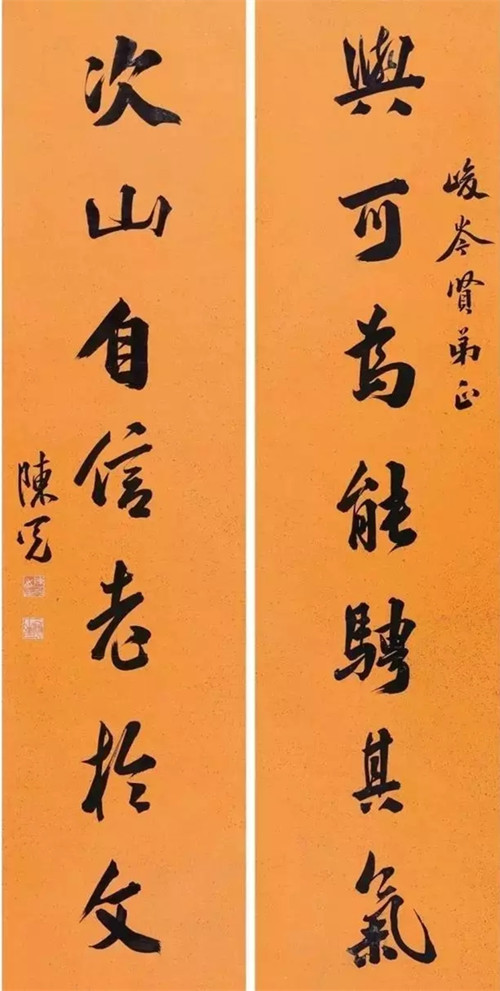 峻岑賢弟正
與可為能騁其氣
次山自信老於文
陳冕